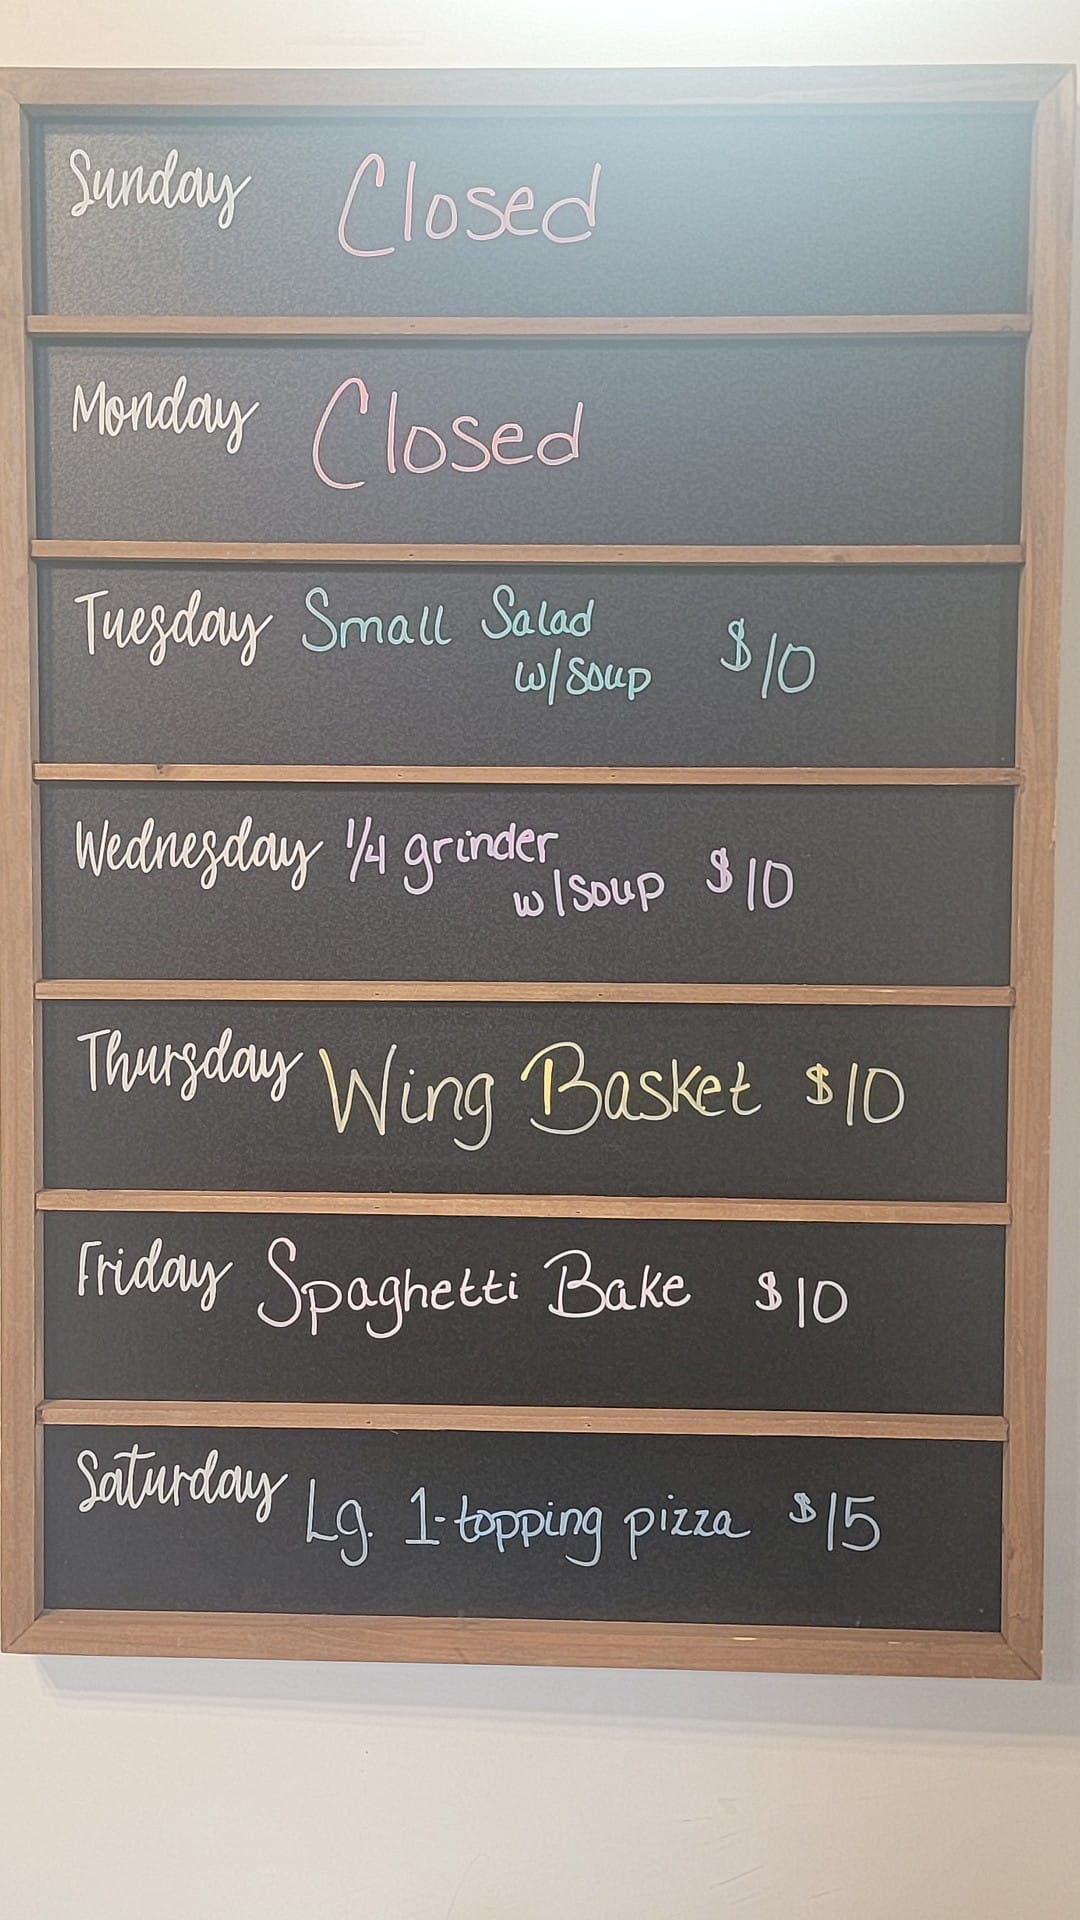 Sunday Closed
Monday Closed
Tuesday Small Salad
w/soup $10
Wednesday 1/4 grinder
w/soup $10
Thursday Wing Basket $10
Friday Spaghetti Bake $10
Saturday Lg. 1-topping pizza $15